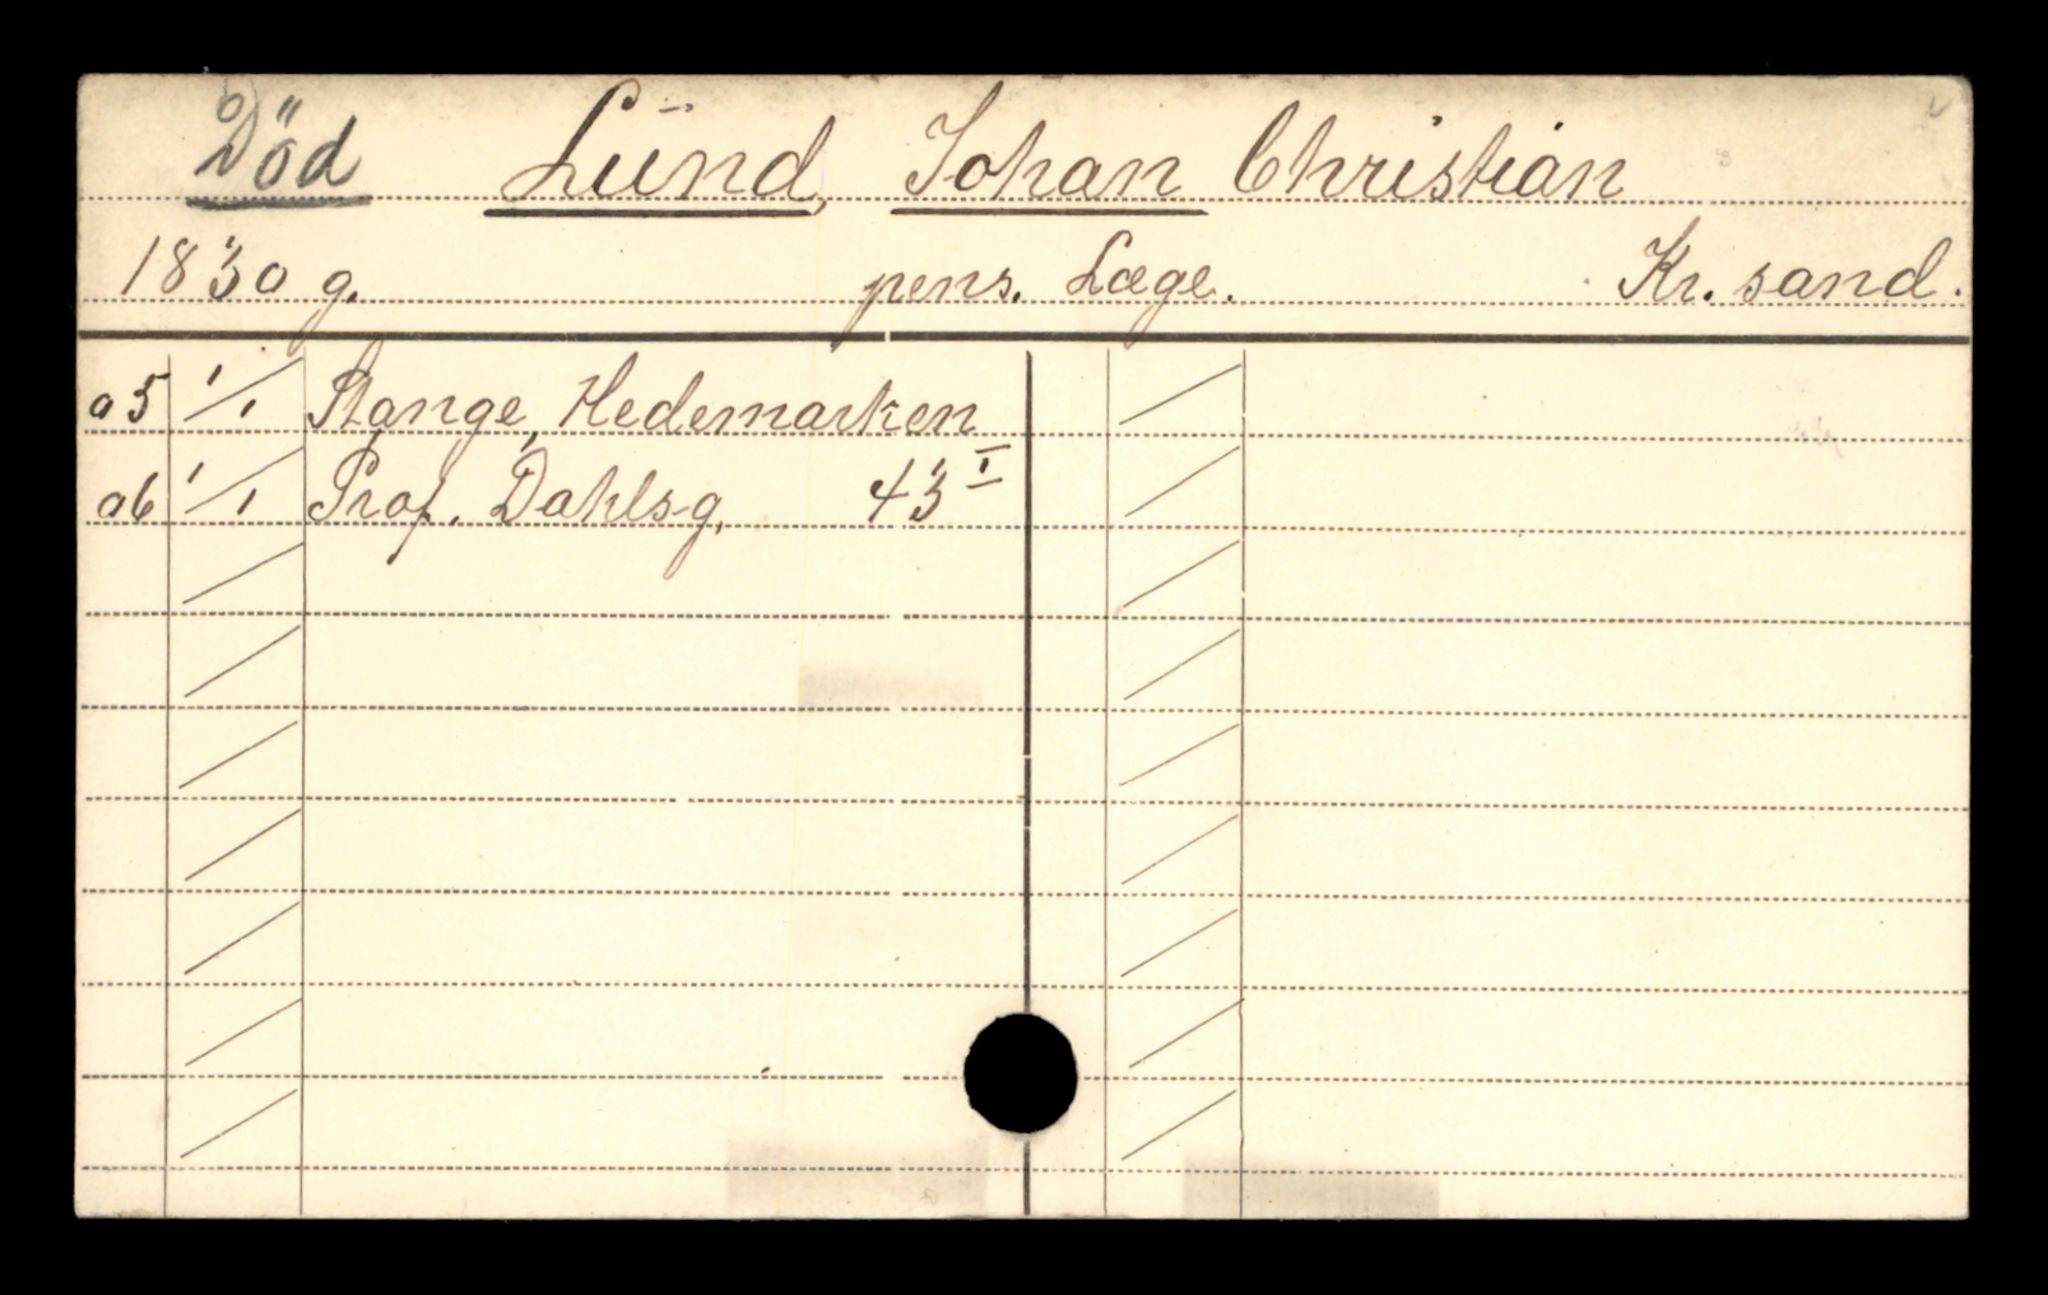 Död Lünd, Johan Christian
1830 g. pens. Læge. Kr. sand.
05 1/1 Stange, Hedemarken
06 1/1 Prof. Dahls g. 43 I